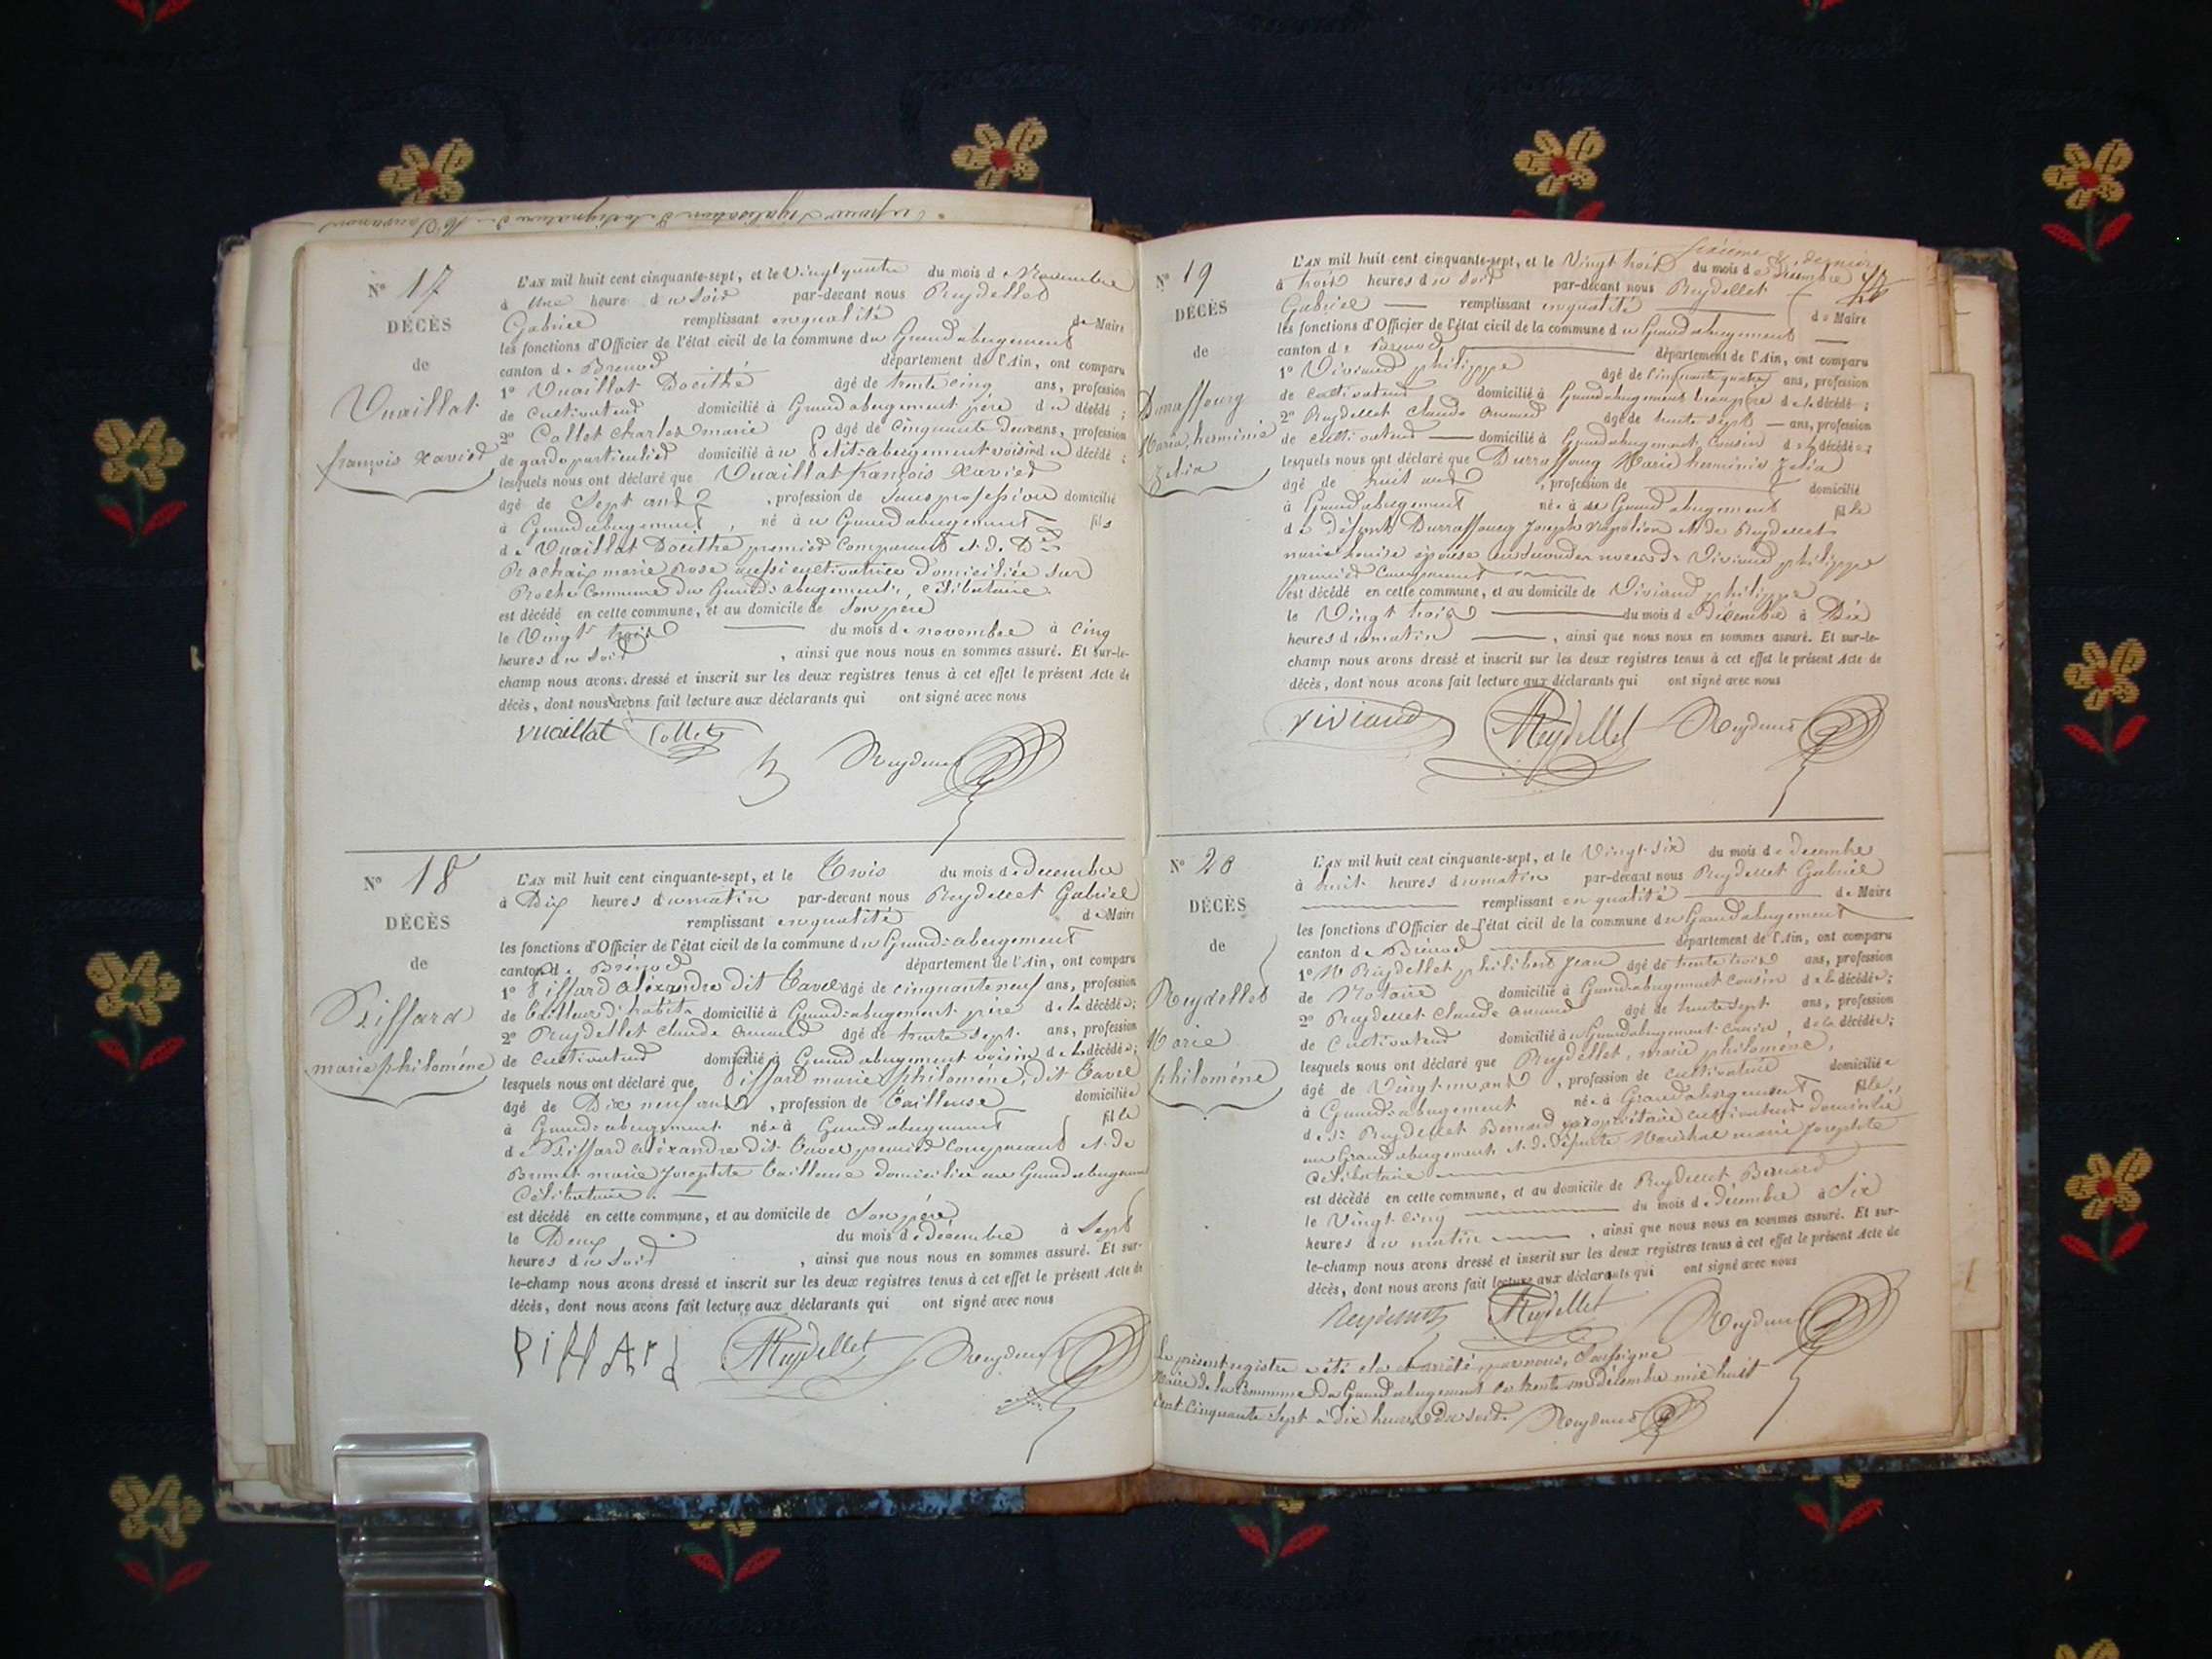 N° 17
DÉCÈS
de
Vuaillat
françois Xavier
L'AN mil huit cent cinquante-sept, et le Vingt quatre du mois de Novembre
à Une heure du Soir par-devant nous Reydellet
Gabriel remplissant en qualité de Maire
les fonctions d'Officier de l'état civil de la commune du Grand abergement
canton de Brenod département de l'Ain, ont comparu
1° Vuaillat Docithé âgé de trente cinq ans, profession
de Cultivateur domicilié à Grand abergement père du décédé ;
2° Collet Charles marie âgé de Cinquante deux ans, profession
de garde particulier domicilié au Petit-abergement voisin du décédé ;
lesquels nous ont déclaré que Vuaillat françois Xavier
âgé de Sept ans , profession de Sans profession domicilié
à Grand abergement , né à u Grand abergement fils
de Vuaillat Docithé premier Comparant et de De
Prochaix marie Rose aussi cultivatrice domiciliée sur
Roche Commune du Grand-abergement, Célibataire
est décédé en cette commune, et au domicile de Son père
le Vingt trois du mois de novembre à Cinq
heures du Soir , ainsi que nous nous en sommes assuré. Et sur-le-
champ nous avons dressé et inscrit sur les deux registres tenus à cet effet le présent Acte de
décès, dont nous avons fait lecture aux déclarants qui ont signé avec nous
Vuaillat Collet
Reydellet
N° 18
DÉCÈS
de
Piffard
marie philoméne
L'AN mil huit cent cinquante-sept, et le Trois du mois de decembre
à Dix heures du matin par-devant nous Reydellet Gabriel
remplissant en qualité de Maire
les fonctions d'Officier de l'état civil de la commune du Grand-abergement
canton de Brénod département de l'Ain, ont comparu
1° Piffard Aléxandre dit Tavel âgé de cinquante neuf ans, profession
de Tailleur d'habits domicilié à Grand-abergement père de la décédée ;
2° Reydellet Claude Armand âgé de trente sept ans, profession
de Cultivateur domicilié à Grand abergement voisin de la décédée ;
lesquels nous ont déclaré que Piffard marie philoméne, dit Tavel
âgé de Dix neuf ans , profession de Tailleuse domiciliée
à Grand-abergement née à Grand abergement fille
de Piffard Aléxandre dit Tavel premier Comparant et de
Brunet marie Josephte Tailleuse domiciliée au Grand abergement
Célibataire.
est décédé en cette commune, et au domicile de Son père
le Deux du mois de décembre à Sept
heures du Soir , ainsi que nous nous en sommes assuré. Et sur-
le-champ nous avons dressé et inscrit sur les deux registres tenus à cet effet le présent Acte de
décès, dont nous avons fait lecture aux déclarants qui ont signé avec nous
PiffArd Reydellet Reydellet
N° 19
DÉCÈS
de
Durraffourg
Marie herminie
Zelia
Sixième & dernier
L'AN mil huit cent cinquante-sept, et le Vingt trois du mois de Décembre
à trois heures du Soir par-devant nous Reydellet
Gabriel remplissant en qualité de Maire
les fonctions d'Officier de l'état civil de la commune du Grand abergement
canton de Brenod département de l'Ain, ont comparu
1° Viviand philippe âgé de Cinquante quatre ans, profession
de Cultivateur domicilié à Grand abergement beau père de la décédé ;
2° Reydellet Claude Armand âgé de trente sept ans, profession
de cultivateur domicilié à Grand abergement Cousin de la décédée ;
lesquels nous ont déclaré que Durraffourg Marie herminie Zelia
âgé de huit ans , profession de domicilié
à Grand abergement née à u Grand abergement fille
de défunt Durraffourg Joseph Napoléon et de Reydellet
marie Louise épouse en secondes noces de Viviand philippe
premier Comparant
est décédé en cette commune, et au domicile de Viviand philippe
le Vingt trois du mois de décembre à Dix
heures du matin , ainsi que nous nous en sommes assuré. Et sur-le-
champ nous avons dressé et inscrit sur les deux registres tenus à cet effet le présent Acte de
décès, dont nous avons fait lecture aux déclarants qui ont signé avec nous
Viviand Reydellet Reydellet
N° 20
DÉCÈS
de
Reydellet
Marie
philoméne
L'AN mil huit cent cinquante-sept, et le Vingt-Six du mois de decembre
à huit heures du matin par-devant nous Reydellet Gabriel
remplissant en qualité de Maire
les fonctions d'Officier de l'état civil de la commune du Grand abergement
canton de Brénod département de l'Ain, ont comparu
1° Mr Reydellet philibert Jean âgé de trente trois ans, profession
de Notaire domicilié à Grand-abergement Cousin de la décédée ;
2° Reydellet Claude Armand âgé de trente sept ans, profession
de Cultivateur domicilié à u Grand abergement Cousin , de la décédée ;
lesquels nous ont déclaré que Reydellet, marie philoméne,
âgé de Vingt-un ans , profession de Cultivatrice domiciliée
à Grand-abergement née à Grand abergement fille,
de Sr Reydellet Bernard propriétaire cultivateur domicilié
au Grand abergement et de défunte Maréchal marie Josephte
Célibataire
est décédé en cette commune, et au domicile de Reydellet, Bernard
le Vingt-Cinq du mois de décembre à Six
heures du matin , ainsi que nous nous en sommes assuré. Et sur-
le-champ nous avons dressé et inscrit sur les deux registres tenus à cet effet le présent Acte de
décès, dont nous avons fait lecture aux déclarants qui ont signé avec nous
Reydellet Reydellet Reydellet
Le présent registre a été clos et arrêté, par nous, Soussigné
Maire de la Commune du Grand abergement le trente un décembre mil huit
Cent Cinquante Sept à Dix heures Du soir. Reydellet